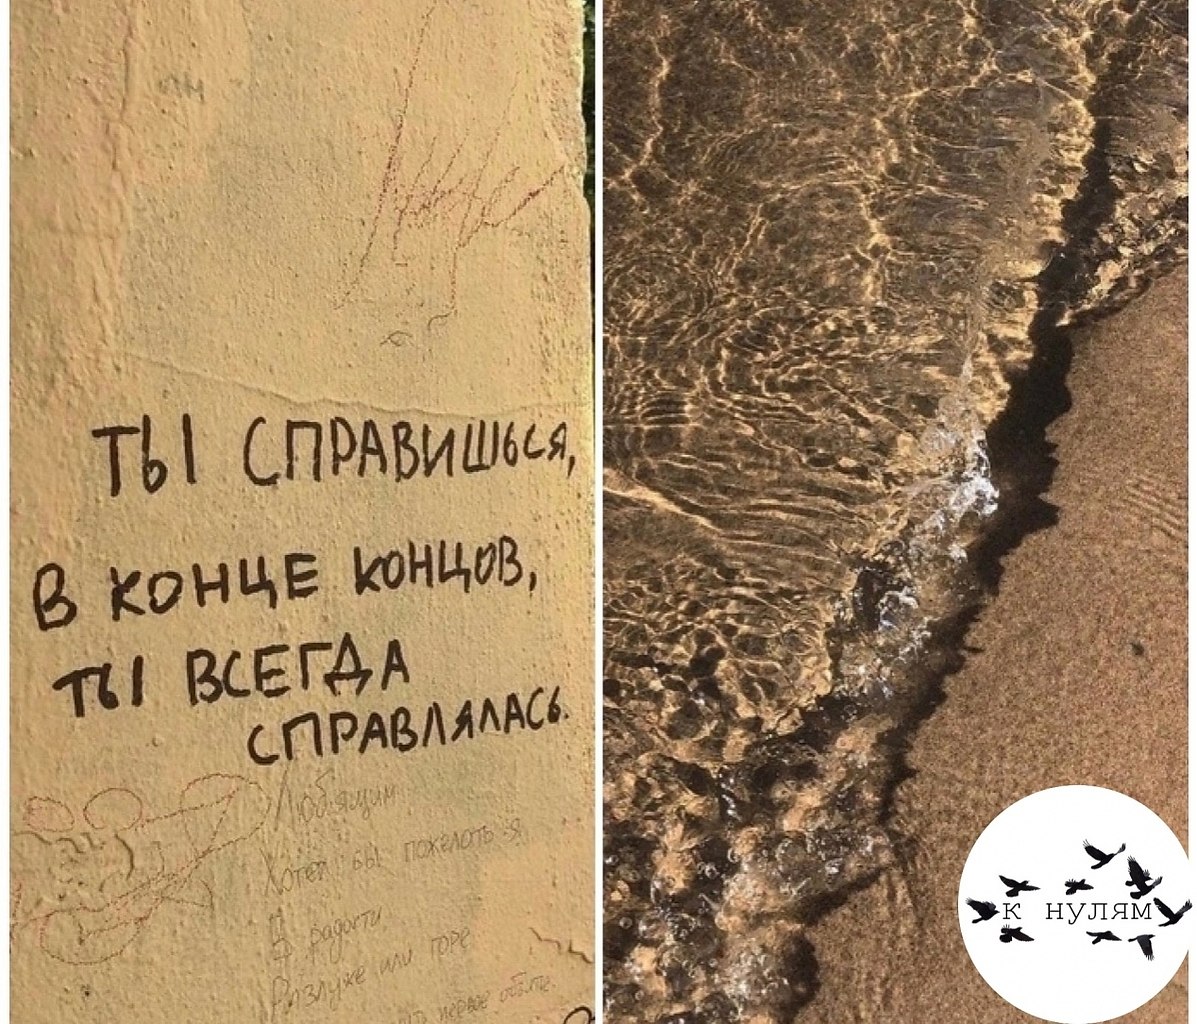 ТЫ СПРАВИШЬСЯ,
В КОНЦЕ КОНЦОВ,
ТЫ ВСЕГДА
СПРАВЛЯЛАСЬ.
Любящим
Хотел бы пожелоть я
В радости
Разлуке или горе
первое
к нулям